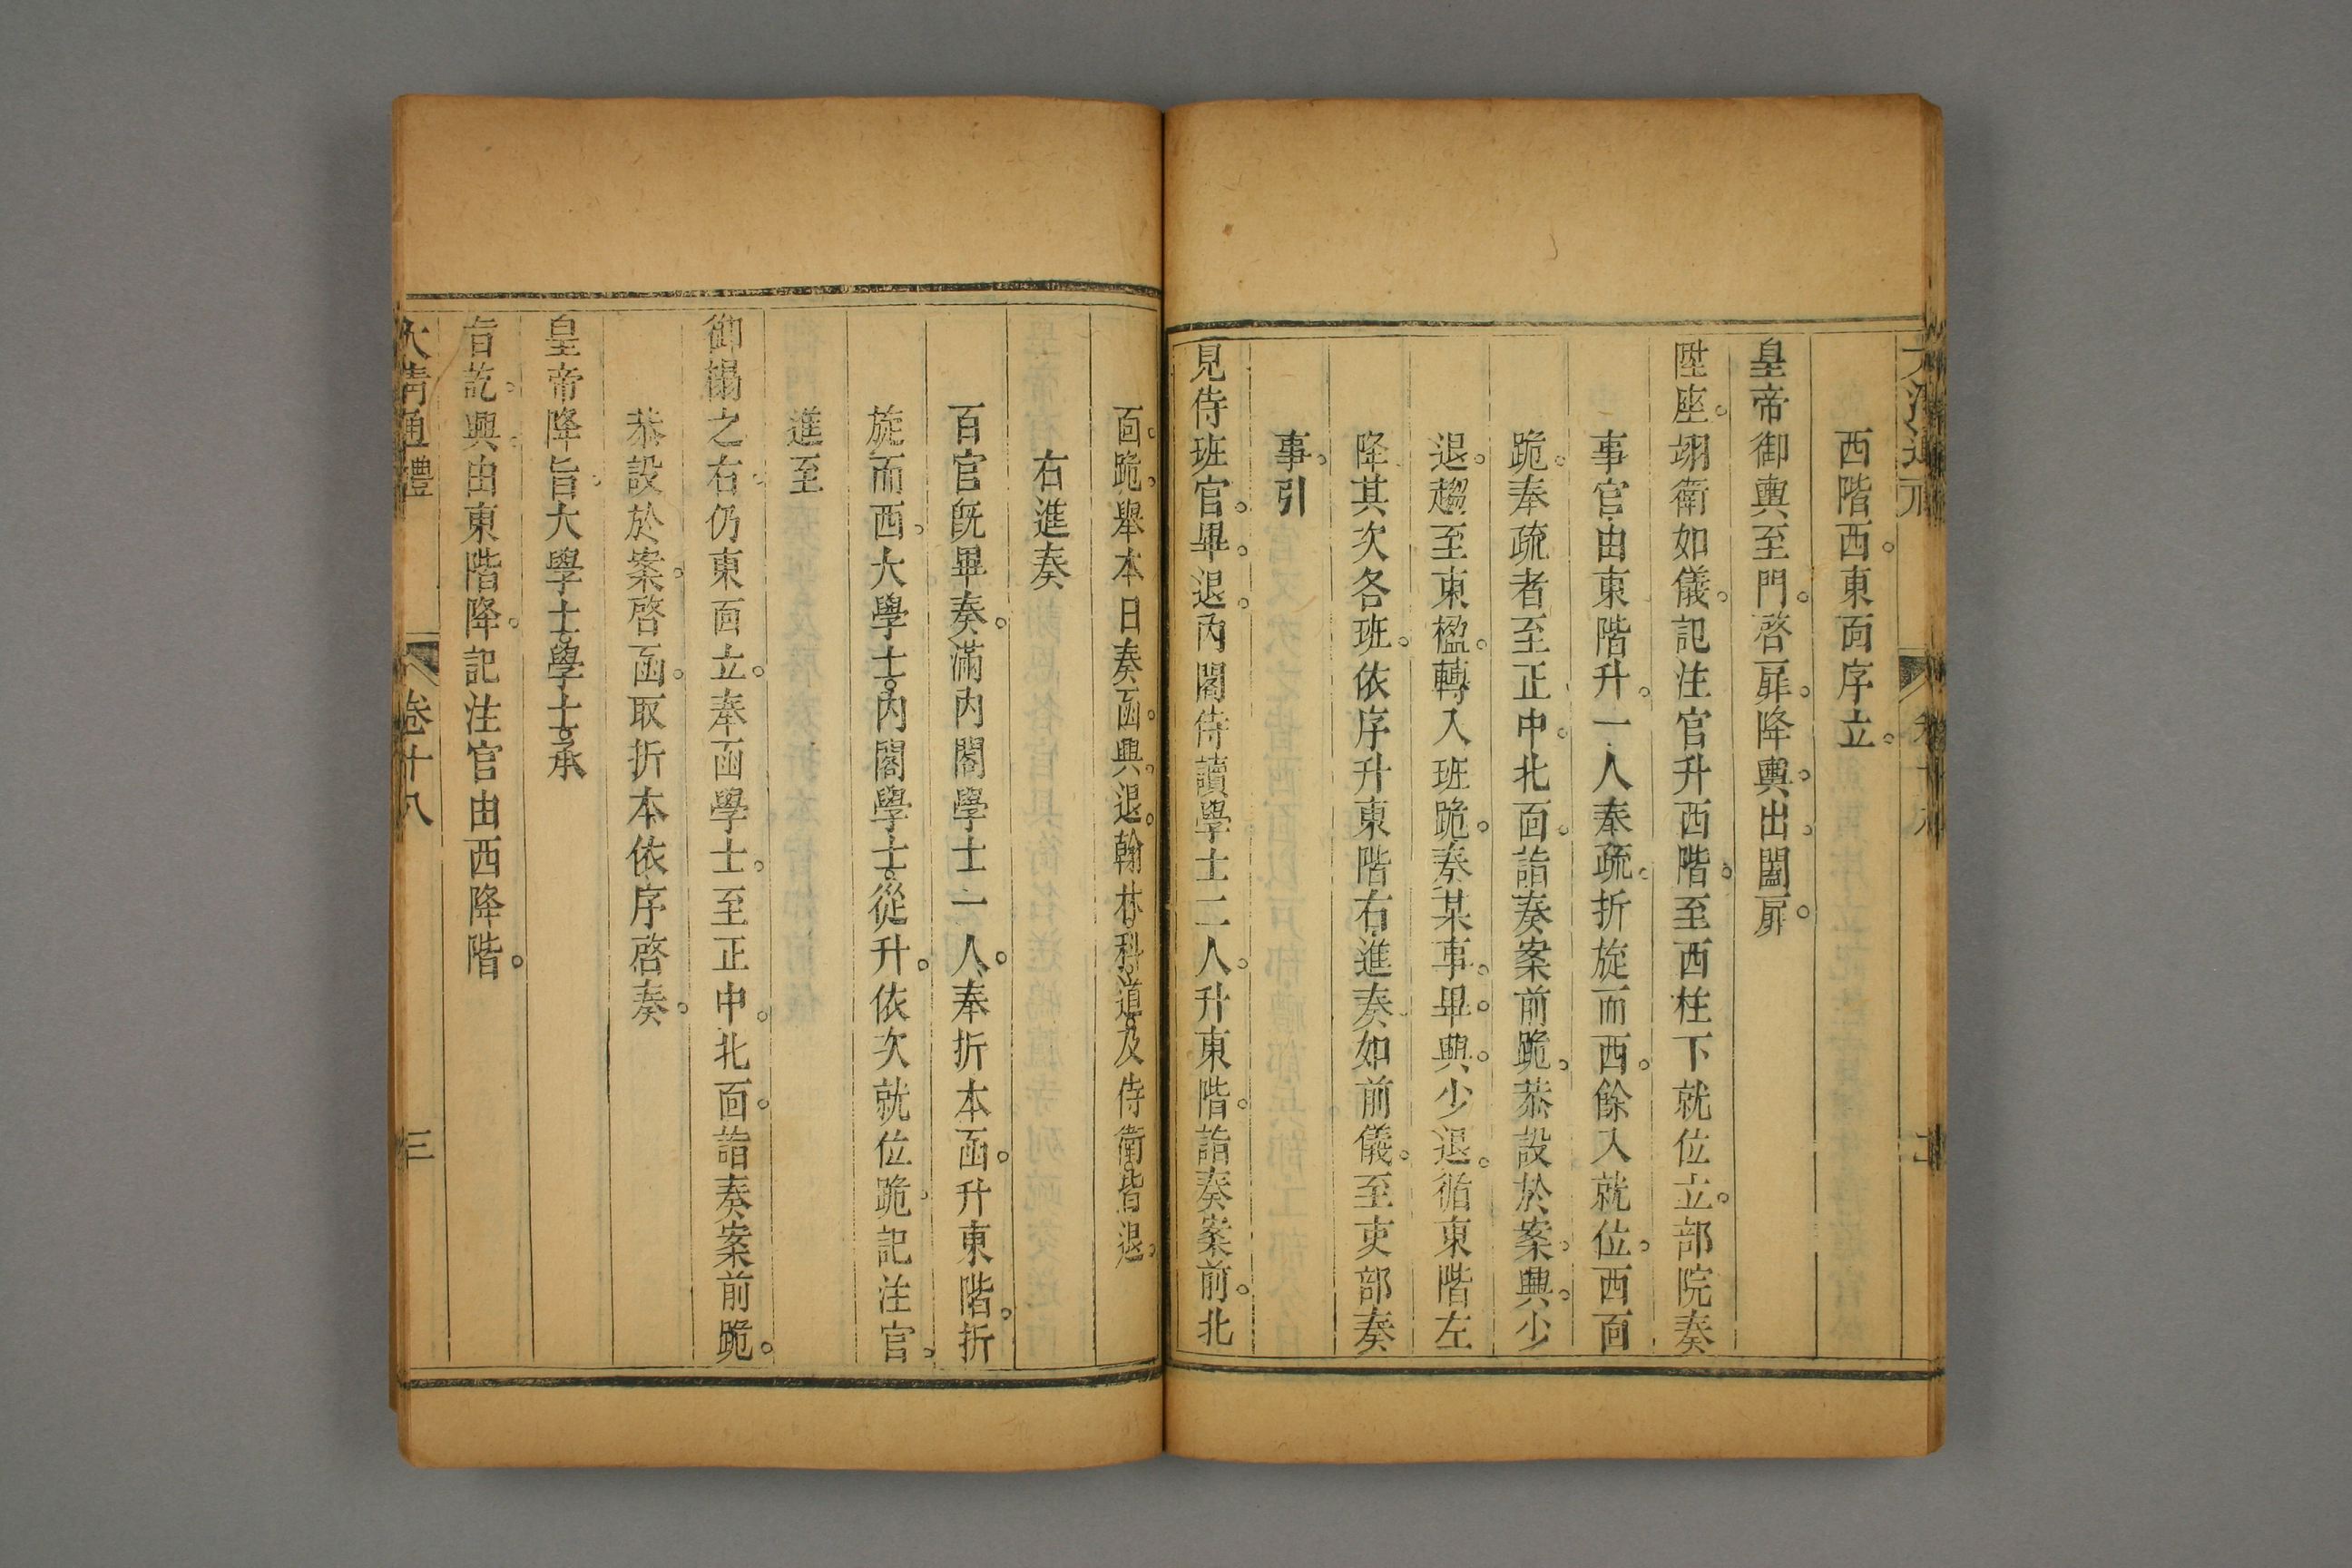 西階西。東面序立。
皇帝御輿至門。啓扉。降輿。出闔扉。
陞座。翊衛如儀。記注官升西階。至西柱下就位立。部院奏
事官由東階升。一人奉疏。折旋而西。餘入就位。西面
跪。奉疏者至正中。北面。詣奏案前跪。恭設於案。興。少
退。趨至東楹。轉入班跪。奏某事。畢。興。少退。循東階左
降。其次各班。依序升東階右進奏如前儀。至吏部奏
事。引
見侍班官。畢。退。內閣侍讀學士二人。升東階。詣奏案前。北
面。跪。舉本日奏函。興。退。翰林。科。道。及侍衛。皆退。
右進奏
百官旣畢奏。滿內閣學士一人。奉折本函。升東階。折
旋而西。大學士。內閣學士。從升。依次就位跪。記注官。
進至
御榻之右。仍東面立。奉函學士。至正中。北面。詣奏案前跪。
恭設於案。啓函。取折本依序啓奏。
皇帝降旨。大學士。學士。承
旨訖。興。由東階降。記注官由西降階。
大淸通禮 卷十八 三